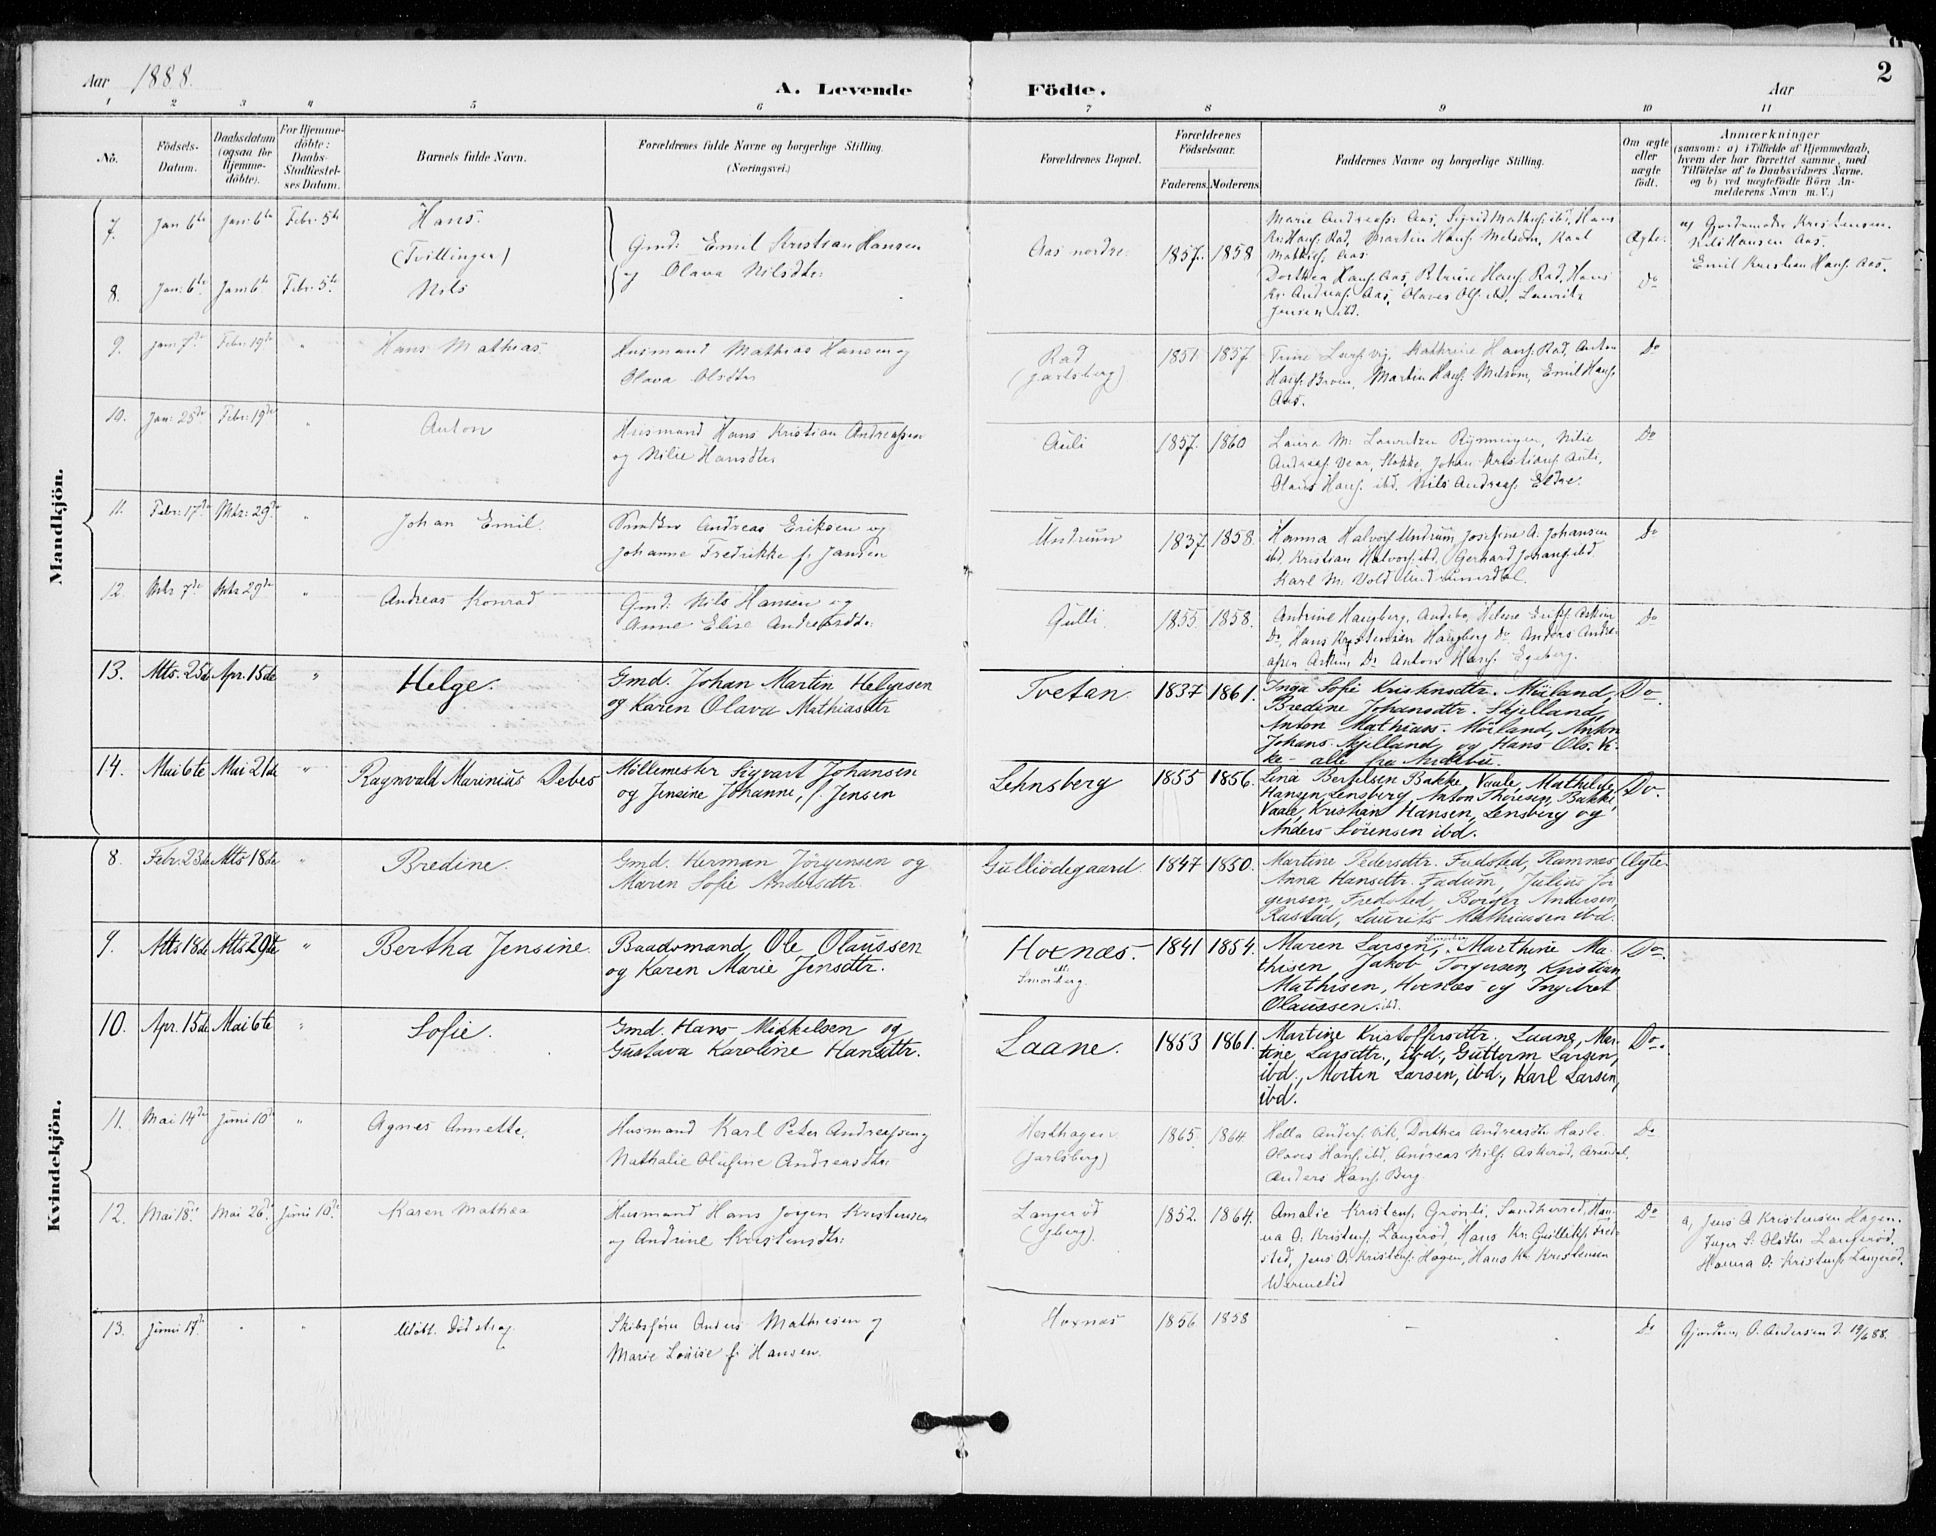 Aar 1888.
A. Levende Födte.
Aar
2
1 2 3 4 5 6 7 8 9 10 11
No.
Födsels-
Datum.
Daabsdatum
(ogsaa for
Hjemme-
döbte).
For Hjemme-
döbte:
Daabs-
Stadfæstel-
ses Datum.
Barnets fulde Navn.
Forældrenes fulde Navne og borgerlige Stilling.
(Næringsvei.)
Forældrenes Bopæl.
Forældrenes
Födselsaar.
Faderens.
Moderens.
Faddernes Navne og borgerlige Stilling.
Om ægte
eller
uægte
födt.
Anmærkninger
(saasom: a) i Tilfælde af Hjemmedaab,
hvem der har forrettet samme, med
Tilföielse af to Daabsvidners Navne.
og b) ved uægtefödte Börn An-
melderens Navn m. V.)
Mandkjön.
7. Jan 6te Jan: 6te Febr: 5te Hans.
(Tvillinger)
Gmd: Emil Kristian Hansen
og Olava Nilsdtr:
Aas nordre. 1857. 1858
Marie Andreass: Aas, Sigrid Mathis: ibd, Hans
Kr: Hans: Rad, Martin Hans: Melsom, Karl
Mathis: Aas.
Ægte.
a) Gjordemoder Kristensen.
Nils Hansen Aas.
Emil Kristian Hans: Aas.
8. Jan: 6te Jan 6te Febr: 5te Nils
Dorthea Hans: Aas, Petrine Hans: Rad, Hans
Kr. Andreas: Aas, Olaves Ols: ibd, Laurits
Jensen ibd.
Do
9. Jan 7de Febr: 19de " Hans Mathias.
Husmand Mathias Hansen og
Olava Olsdtr
Rad
(Jarlsberg)
1851 1857
Trine Lars: vig, Kathrine Hans: Rad, Anton
Hans: Broen, Martin Hans: Melsom, Emil Hans:
Aas.
Do
10. Jan: 25de Febr: 19de " Anton
Husmand Hans Kristian Andreassen
og Nilie Hansdtr
Auli 1857. 1860
Laura M. Lauritzen Rynningen, Nilie
Andreas: Vear, Stokke, Johan Kristians: Auli,
Olaus Hans: ibd. Nils Andreas: Eldre.
Do
11. Febr: 17de Mts: 29de " Johan Emil.
Andreas Eriksen og
Johanne Fredrikke f. Jansen
Undrum 1837. 1858.
Hanna Halvors: Undrum, Josefine A. Johansen
ibd, Kristian Halvors: ibd, Gerhard Johans: ibd.
Karl M. Vold
Do
12. Mts 7de Mts 29de " Andreas Konrad
Gmd: Nils Hansen og
Anne Elise Andreasdtr:
Gulli. 1855. 1858.
Andrine Haugberg, Andebo, Helene Askim
Do, Hans Kristensen Haugberg Do, Anders Andre-
assen Askim Do Anton Hans: Egeberg.
Do
13. Mts. 25de Apr. 15de " Helge.
Gmd. Johan Martin Helgesen
og Karen Olava Mathiasdtr
Tvetan. 1837 1861.
Inga Sofie Kristinsdtr. Möiland,
Bredine Johansdtr. Skjelland,
Anton Mathias. Möiland, Anton
Johans. Skjelland og Hans Ols. Vi-
ke - alle fra Andebu.
Do.
14. Mai 6te Mai 21de " Ragnvald Marinius Debes
Möllemester Sigvart Johansen
og Jensine Johanne, f. Jensen
Lehnsberg 1855 1856.
Lina Bertelsen Bakke, Vaale, Mathilde
Hansen, Lensberg, Anton Thoresen, Bakke,
Vaale, Kristian Hansen, Lensberg og
Anders Sörensen ibd.
Do.
Kvindekjön.
8. Febr. 23de Mts 18de " Bredine.
Gmd. Herman Jörgensen og
Maren Sofie Andersdtr.
Gulliödegaard. 1847 1850.
Martine Pedersdtr. Fredsted, Ramnes,
Anna Hansdtr. Fadum, Julius Jör-
gensen, Fredsted, Borger Andersen,
Rustad, Laurits Mathiassen ibd.
Ægte.
9. Mts 18de Mts 29te " Bertha Jensine.
Baadsmand Ole Olaussen
og Karen Marie Jensdtr.
Hoxnæs.
ell:
Smörberg.
1841 1854.
Maren Larsen, Marthine Ma-
thisen, Jakob Torgersen, Kristian
Mathisen, Hoxnæs og Ingebret
Olaussen. ibd.
Do.
10. Apr. 15de Mai 6te " Sofie.
Gmd. Hans Mikkelsen og
Gustava Karoline Hansdtr.
Laane. 1853 1861.
Martine Kristoffersdtr. Laane, Mar-
tine Larsdtr., ibd., Guttorm Larsen,
ibd., Morten Larsen, ibd., Karl Larsen,
ibd.
Do.
11. Mai 14de Juni 10de " Agnes Annette.
Husmand Karl Peter Andreassen og
Nathalie Olufine Andreasdtr:
Hesthagen
(Jarlsberg)
1865. 1864.
Hella Anders: Vik, Dorthea Andreasdtr Hasle.
Olaves Hans: ibd, Andreas Nils: Askerød, Arendal,
Anders Hans: Berg
Do
12. Mai 18de Mai 26de Juni 10de Karen Mathea
Husmand Hans Jørgen Kristensen
og Andrine Kristensdtr:
Langerød
(Gberg).
1852. 1864.
Amalie Kristens: Grönli, Sandherred, Han-
na O. Kristens: Langerød, Hans Kr: Gulliks: Fred-
sted, Jens O. Kristens: Hagen, Hans Kr Kristensen
Wermelid
Do
a, Jens O. Kristensen Hagen.
Inger S. Olsdtr Langerød.
Hanna O. Kristens: Langerød.
13. Juni 17de " " Udöbt. Död strax.
Skibsförer Anders Mathisen og
Marie Louise f. Hansen.
Hoxnæs 1856 1858
—
Do
Gjordem. O. Andersen d. 19/6 88.